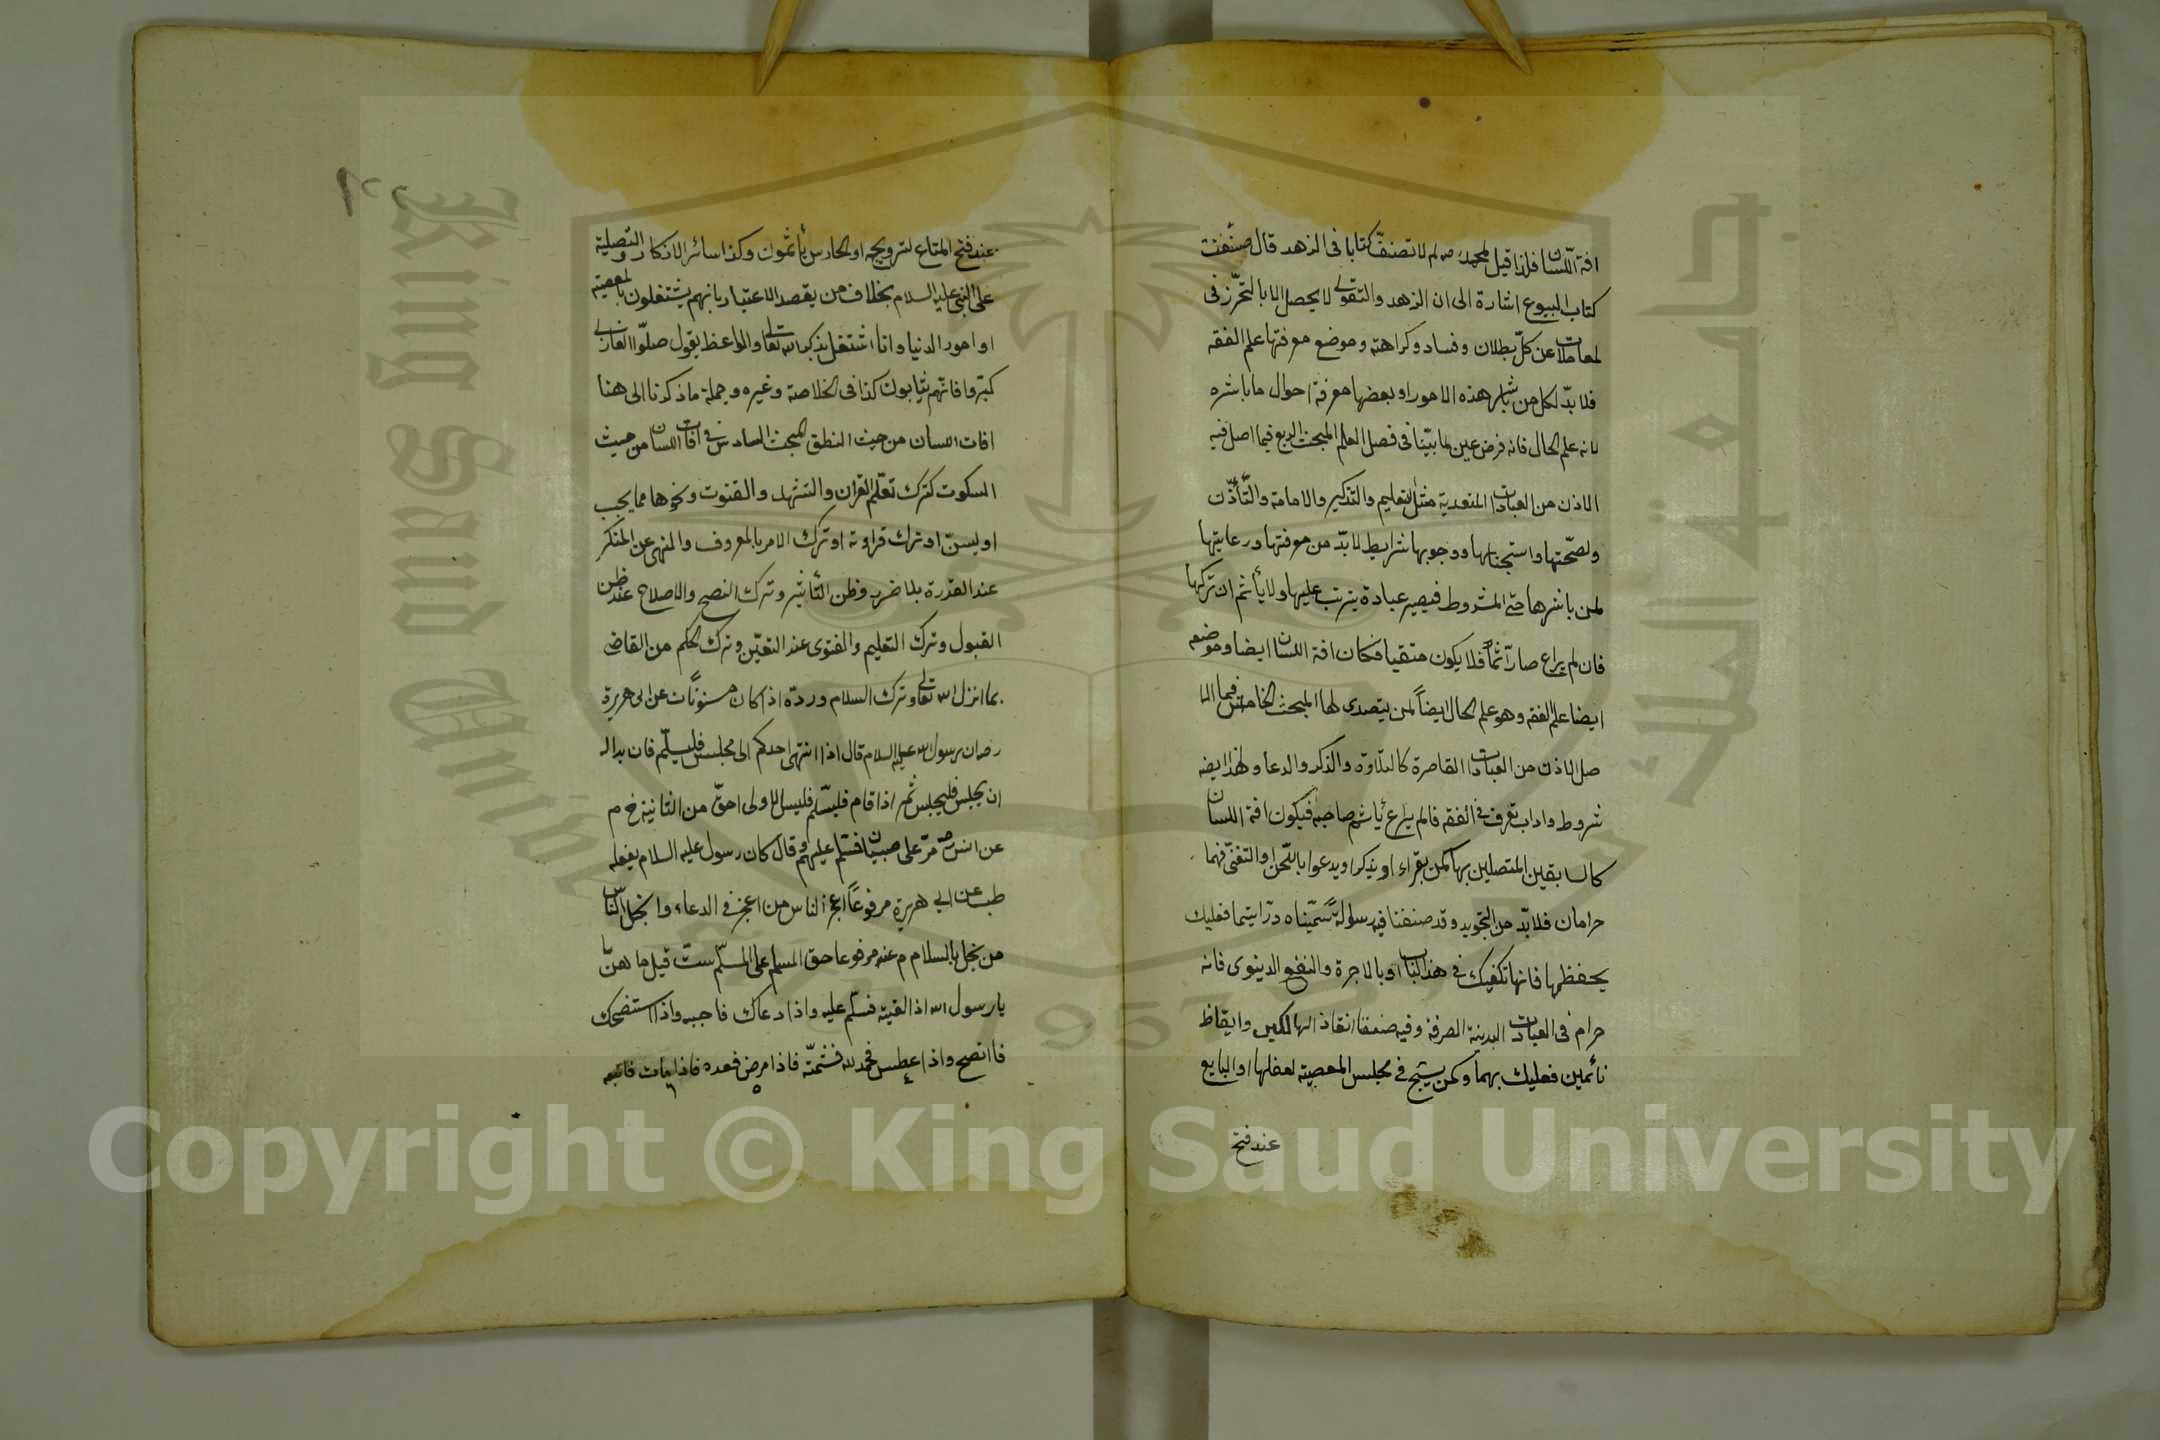 افة اللسان فلذا قيل لمحمد لم لا تصنف كتابا فى الزهد قال صنفت
كتاب البيوع اشارة الى ان الزهد والتقوى لا يحصل الا بالتحرز فى
لمعاملات عن كل بطلان وفساد وكراهة وموضع معرفتها علم الفقه
فلا بد لكل من باشر هذه الامور او بعضها معرفة احوال ما باشره
لانه علم الحال فانه فرض عين لما بينا فى فصل العلم المبحث الرابع فيما اصل فيه
الاذن من العبادات المتعدية مثل التعليم والتذكير والامامة والتأذن
ولصحتها واستجنابها ووجوبها شرايط لا بد من معرفتها ورعايتها
لمن باشرها حتى المشروط فيصير عبادة يترتب عليها ولا يأثم ان تركها
فان لم يراع صار آثما فلا يكون متقيا فكان افة اللسان ايضا وموضعه
ايضا علم الفقه وهو علم الحال ايضاً لمن يتصدى لها المبحث الخامس فيما الا
صل الاذن من العبادات القاصرة كالتلاوة والذكر والدعا ولهذا ايضه
شروط واداب تعرف فى الفقه فالم يراع يأثم صاحبه فيكون افة اللسان
كالسابقين المتصلين بها كمن يقراء او يذكر او يدعوا باللحن او التغنى فهما
حرامان فلا بد من التجويد وقد صنفنا فيه رسولة سميناه درا يتيما فعليك
بحفظها فانها تكفيك فى هذ الباب او بالاجرة والنفع الدينوى فانه
حرام فى العبادات البدنية الصرفة وفيه صنفنا انقاذ الهالكين وايقاظ
نائمين فعليك بهما وكمن يسبح فى مجلس المعصية لعفلها او البايع
عند فتح
عند فتح المتاع لترويجه او الحارس يأثمون وكذا سائر الاذكار والتصلية
على النبى عليه السلام بخلاف من يقصد الاعتبار بانهم يشتغلون بالمعصية
او امور الدنيا وانا اشتغل بذكر الله تعالى والواعظ يقول صلوا الغازى
كبروا فانهم يثابون كذا فى الخلاصة وغيره وجملة ما ذكرنا الى هنا
افات اللسان من حيث النطق المبحث السادس فى افات اللسان من حيث
السكوت كترك تعلم القران والتشهد والقنوت ونحوها مما يجب
او يسن او ترك قراوته او ترك الامر بالمعروف والنهى عن المنكر
عند القدرة بلا ضرر وظن التأثير وترك النصح والاصلاح عند ظن
القبول وترك التعليم والفتوى عند التعين وترك الحكم من القاضى
بما انزل الله تعالى وترك السلام ورده اذا كان مسنونا ت عن ابى هريرة
رضه ان رسول الله عليه السلام قال اذا انتهى احدكم الى مجلس فليسلم فان بدا له
ان يجلس فليجلس ثم اذا قام فليسلم فليس الاولى احق من الثانية خ م
عن انس رضه مر على صبيان فسلم عليهم وقال كان رسول عليه السلام يفعله
طب عن ابى هريرة مرفوعاً اعجز الناس من اعجز فى الدعاء وابخل الناس
من بخل بالسلام م عنه مرفوعا حق المسلم على المسلم ست قيل ما هن
يا رسول الله اذ القيته فسلم عليه واذا دعاك فاجبه واذا استنصحك
فا انصح واذا عطس فحمد لله فشمته فاذا مرض فعده فاذا مات فاتبعه
Copyright © King Saud University
King Saud University
1957